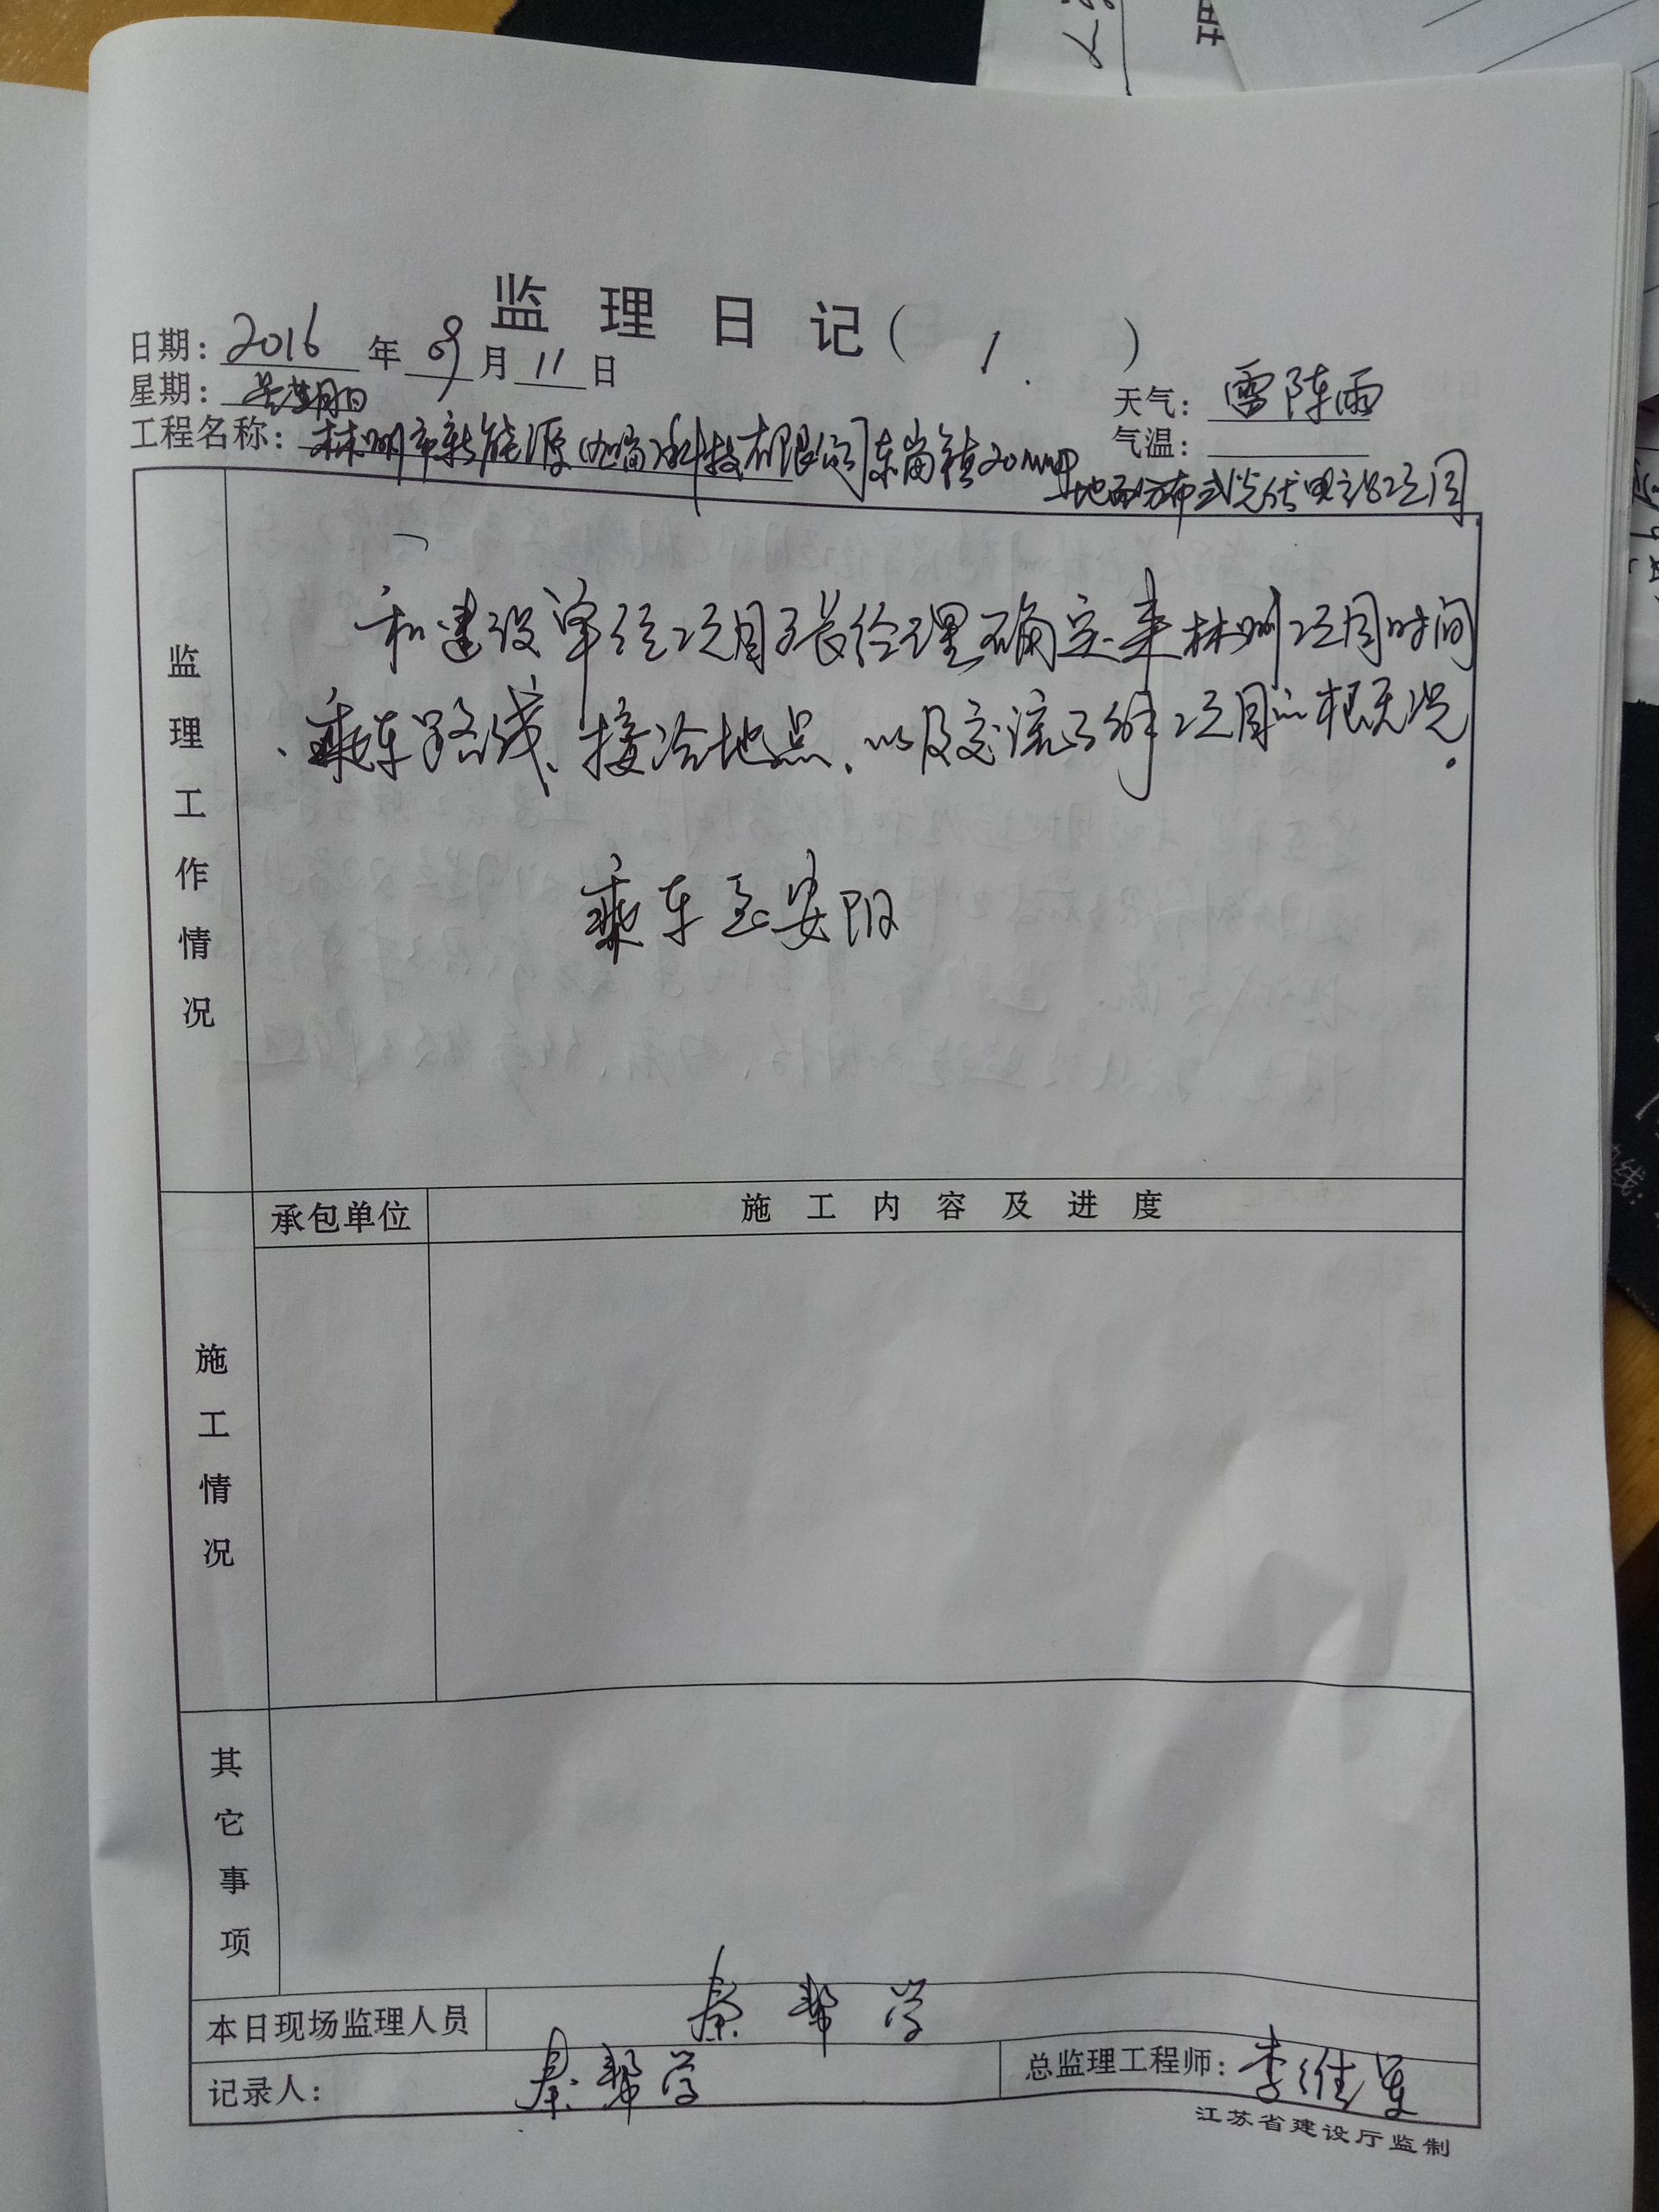 监理日记(1.)
日期: 2016 年 09 月 11 日
星期: 星期日
天气: 雷阵雨
工程名称: 林州市新能源科技有限公司东岗镇20MW
气温:
地面分布式光伏电站项目
监理工作情况
和建设单位项目部张经理确定来林州项目时间
、乘车路线、接洽地点、以及交流了解项目的概况.
乘车至安阳
承包单位
施工内容及进度
施工情况
其它事项
本日现场监理人员
秦帮学
记录人:
秦帮学
总监理工程师: 李维军
江苏省建设厅监制